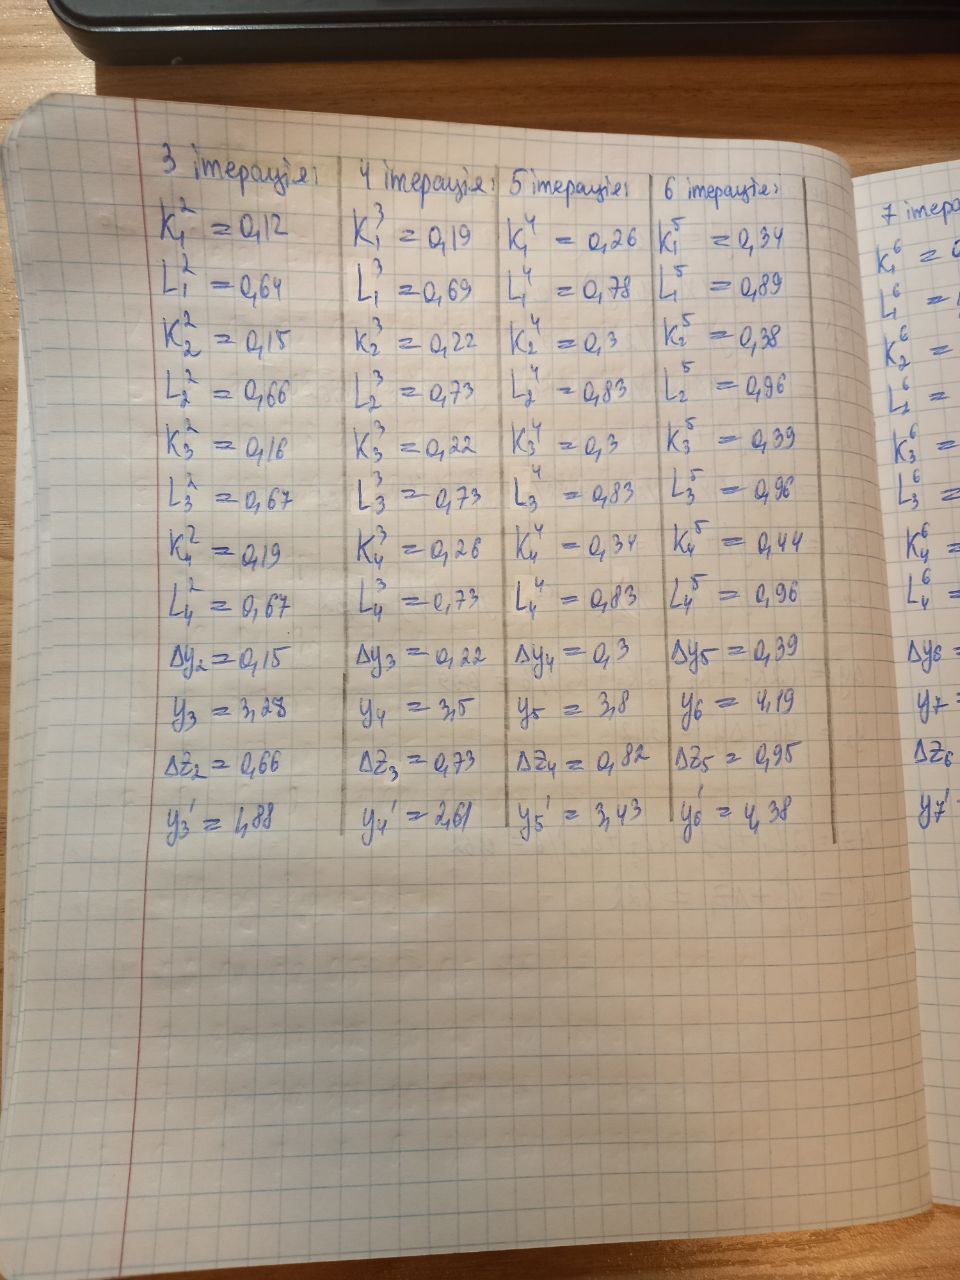 3 ітерація:
K₁² = 0,12
L₁² = 0,64
K₂² = 0,15
L₂² = 0,66
K₃² = 0,16
L₃² = 0,67
K₄² = 0,19
L₄² = 0,67
Δy₂ = 0,15
y₃ = 3,28
Δz₂ = 0,66
y₃' = 1,88
4 ітерація:
K₁³ = 0,19
L₁³ = 0,69
K₂³ = 0,22
L₂³ = 0,73
K₃³ = 0,22
L₃³ = 0,73
K₄³ = 0,26
L₄³ = 0,73
Δy₃ = 0,22
y₄ = 3,5
Δz₃ = 0,73
y₄' = 2,61
5 ітерація:
K₁⁴ = 0,26
L₁⁴ = 0,78
K₂⁴ = 0,3
L₂⁴ = 0,83
K₃⁴ = 0,3
L₃⁴ = 0,83
K₄⁴ = 0,34
L₄⁴ = 0,83
Δy₄ = 0,3
y₅ = 3,8
Δz₄ = 0,82
y₅' = 3,43
6 ітерація:
K₁⁵ = 0,34
L₁⁵ = 0,89
K₂⁵ = 0,38
L₂⁵ = 0,96
K₃⁵ = 0,39
L₃⁵ = 0,96
K₄⁵ = 0,44
L₄⁵ = 0,96
Δy₅ = 0,39
y₆ = 4,19
Δz₅ = 0,95
y₆' = 4,38
7 ітера
K₁⁶ =
L₁⁶ =
K₂⁶ =
L₂⁶ =
K₃⁶ =
L₃⁶ =
K₄⁶ =
L₄⁶ =
Δy₆ =
y₇ =
Δz₆
y₇'